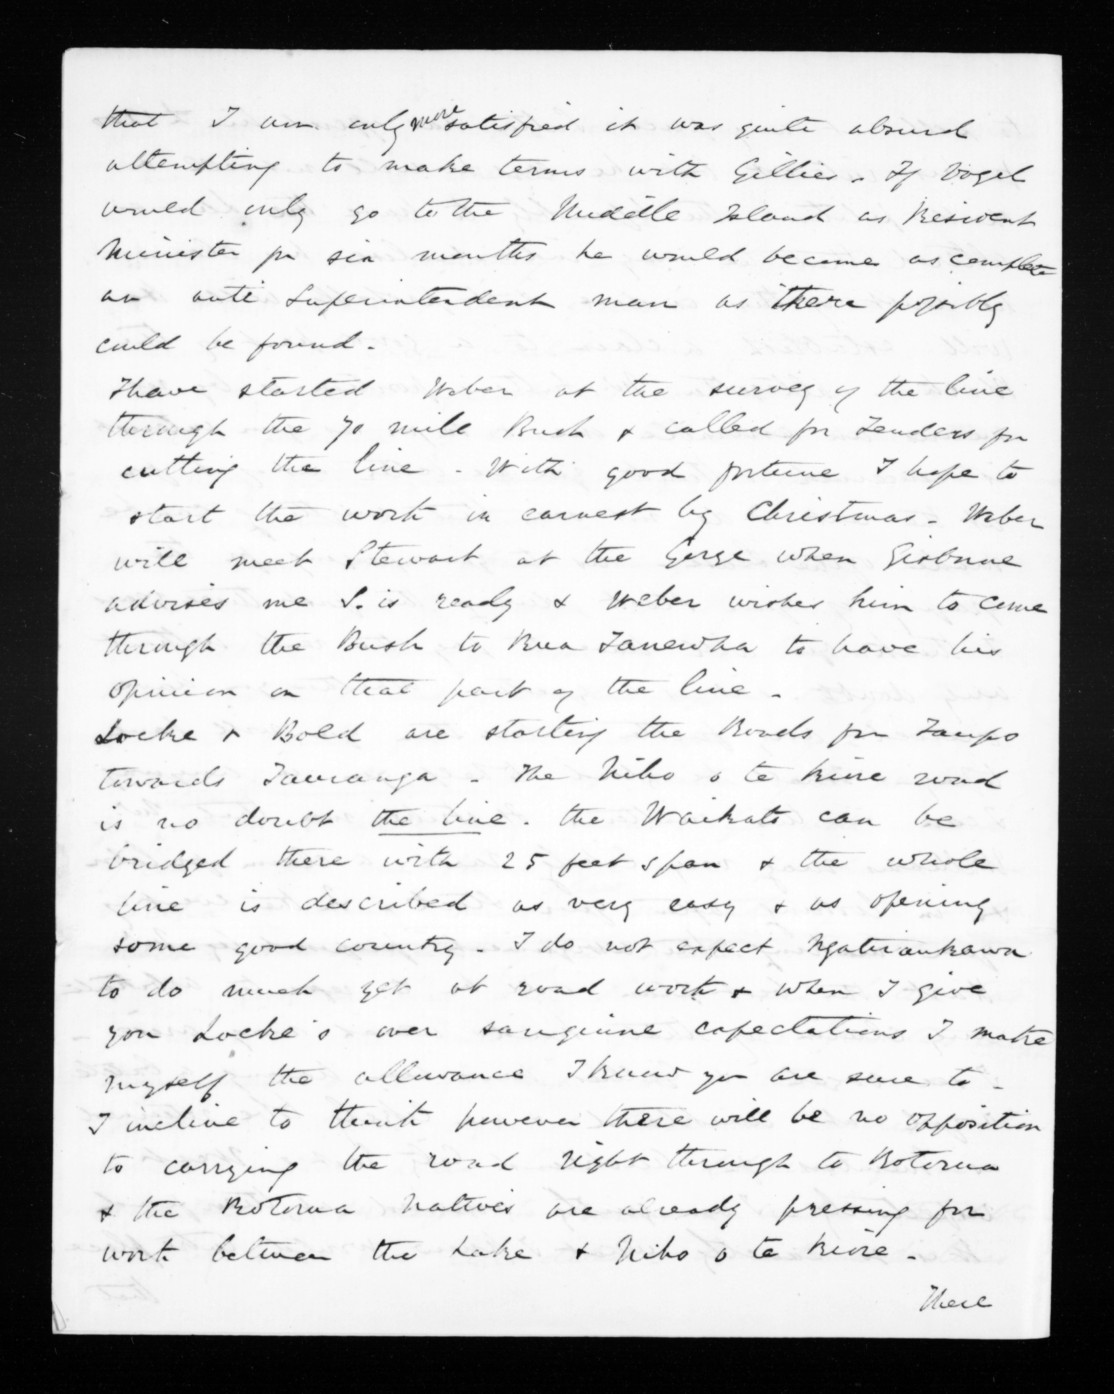 that I am only more satisfied it was quite absurd
attempting to make terms with Gillies. If Vogel
would only go to the Middle Island as Resident
Minister for six months he would become as complete
an anti Superintendent man as there possibly
could be found.
I have started Weber at the survey of the line
through the 70 mile Bush & called for Tenders for
cutting the line. With good fortune I hope to
start the work in earnest by Christmas. Weber
will meet Stewart at the Gorge when Gisborne
advises me S. is ready & Weber wishes him to come
through the Bush to Rua Tanewha to have his
opinion on that part of the line.
Locke & Bold are starting the Roads from Taupo
towards Tauranga. The Niho o te Kiore road
is no doubt the line. the Waikato can be
bridged there with 25 feet span & the whole
line is described as very easy & as opening
some good country. I do not expect Ngatiraukawa
to do much yet at road work & when I give
you Locke's over sanguine expectations I make
myself the allowance I know you are sure to.
I incline to think however there will be no opposition
to carrying the road right through to Rotorua
& the Rotorua Natives are already pressing for
work between the Lake & Niho o te Kiore.
There